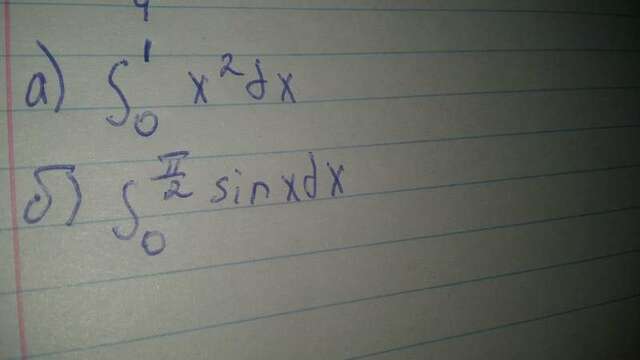 а) ∫₀¹ x² dx
б) ∫₀^(π/2) sin x dx